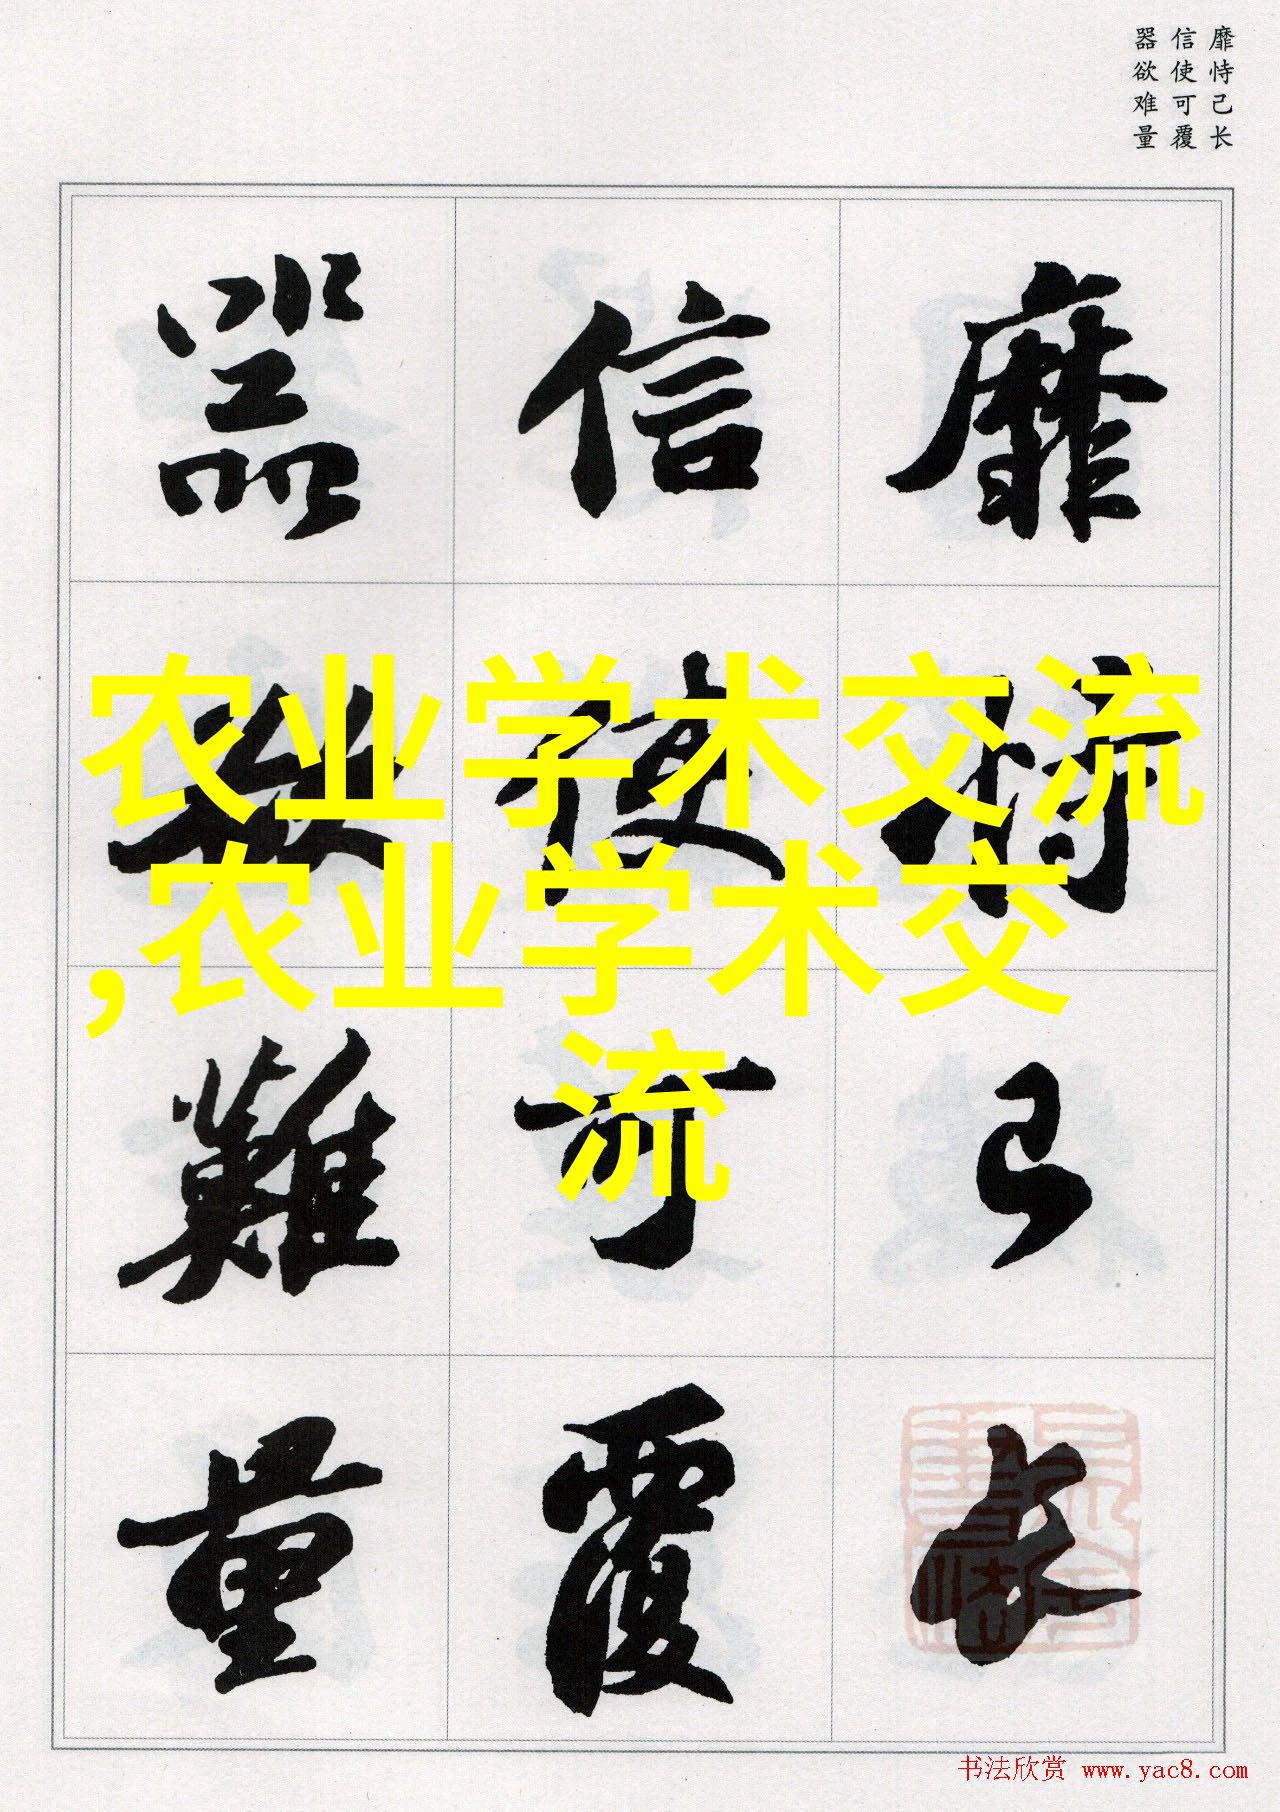 靡恃己长
信使可覆
器欲难量
靡恃己長
信使可覆
器欲難量
农业学术交流
,农业学术交
流
书法欣赏 www.yac8.com